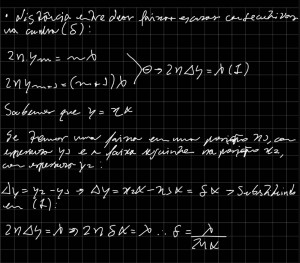 • distância entre duas faixas escuras consecutivas
na cunha (δ):
2n y_m = mλ
2n y_{m+1} = (m+1)λ ⊖→ 2nΔy = λ (1)
Sabemos que y = xα
Se tomar uma faixa em uma posição x_1, com
espessura y_1 e a faixa seguinte na posição x_2,
com espessura y_2:
Δy = y_2 - y_1 → Δy = x_2α - x_1α = δα → Substituindo
em (1):
2nΔy = λ ⇒ 2n δα = λ ∴ δ = λ/2nα